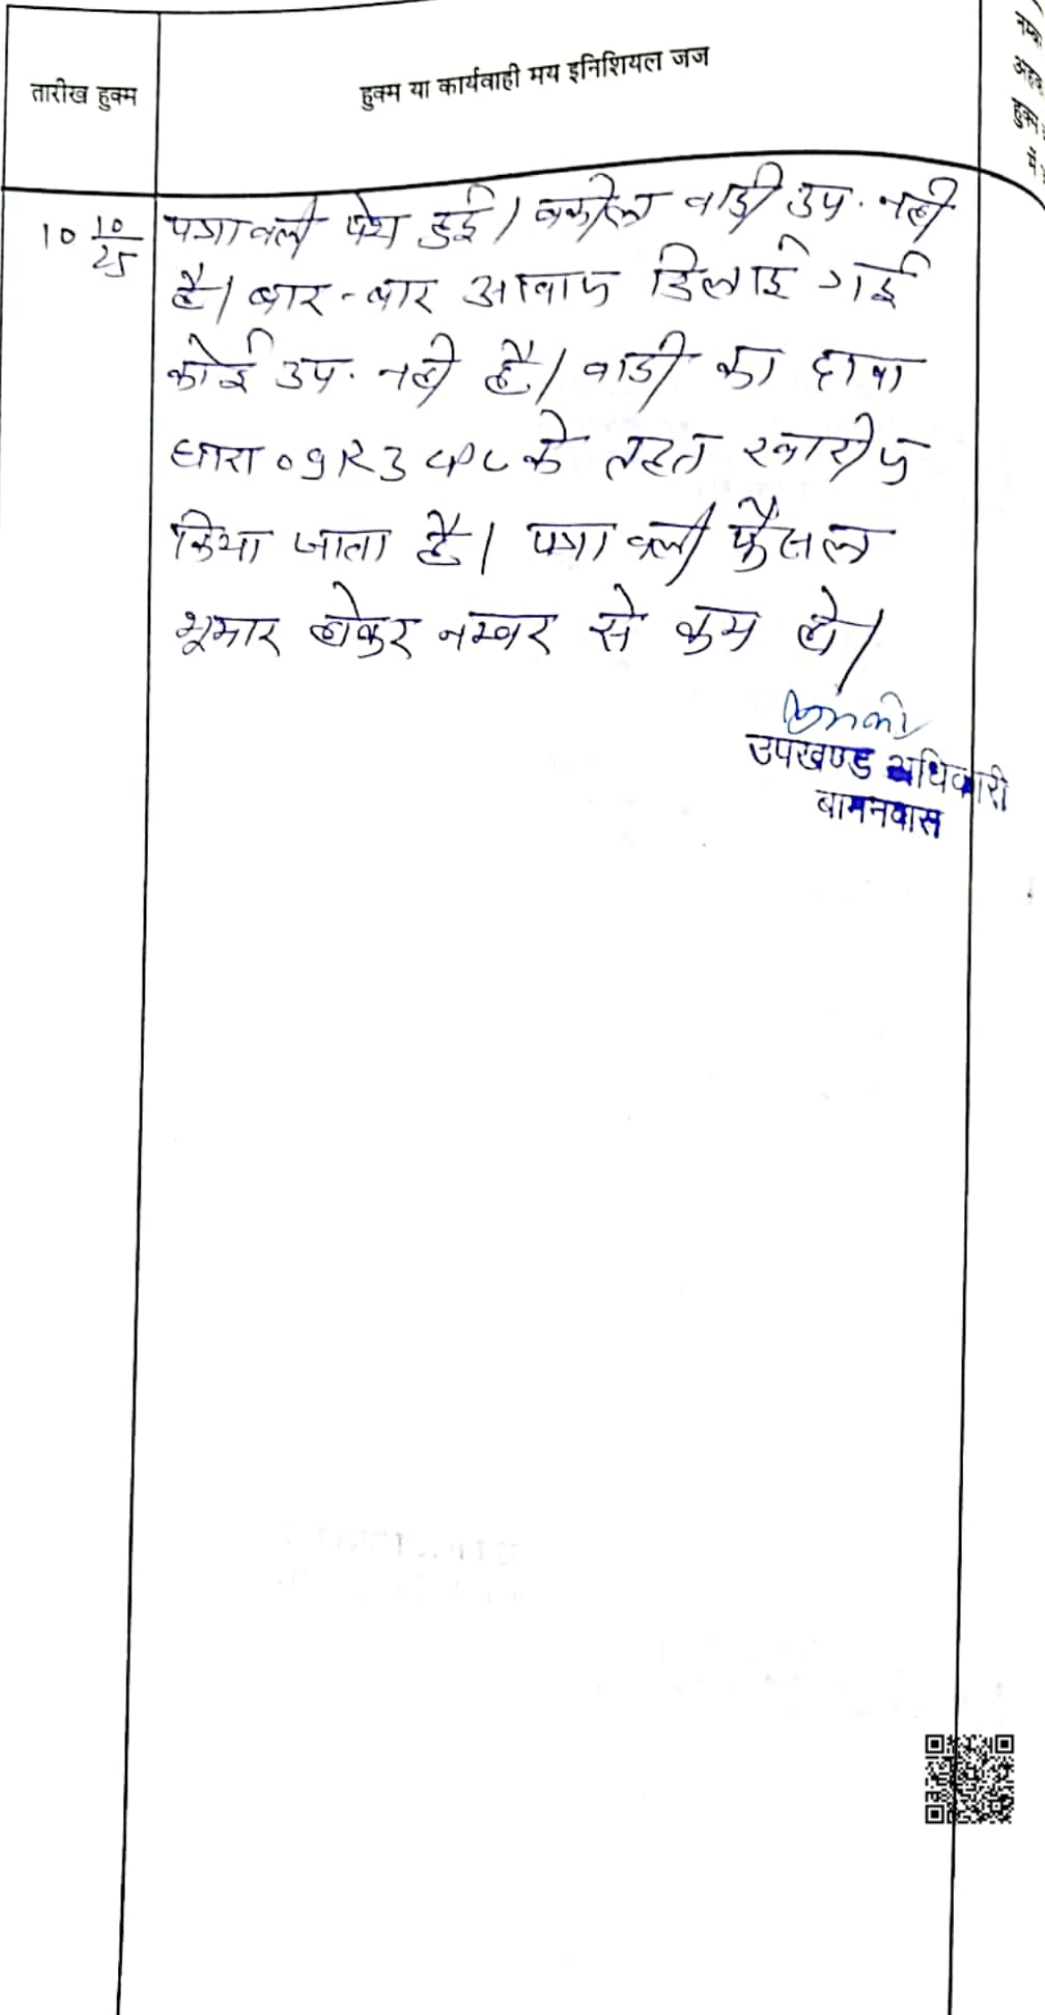 तारीख हुक्म
हुक्म या कार्यवाही मय इनिशियल जज
10 10/25
पत्रावली पेश हुई। वकील वादी उप. नही
है। बार-बार आवाज दिलाई गई
कोई उप. नही है। वादी का दावा
धारा 09R3 CPC के तहत खारीज
किया जाता है। पत्रावली फैसल
शूमार होकर नम्बर से कम हो।
उपखण्ड अधिकारी
बामनवास